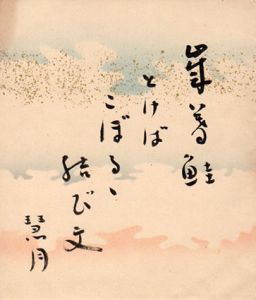 歳暮鮭
とけば
こぼるゝ
結び文
慧月